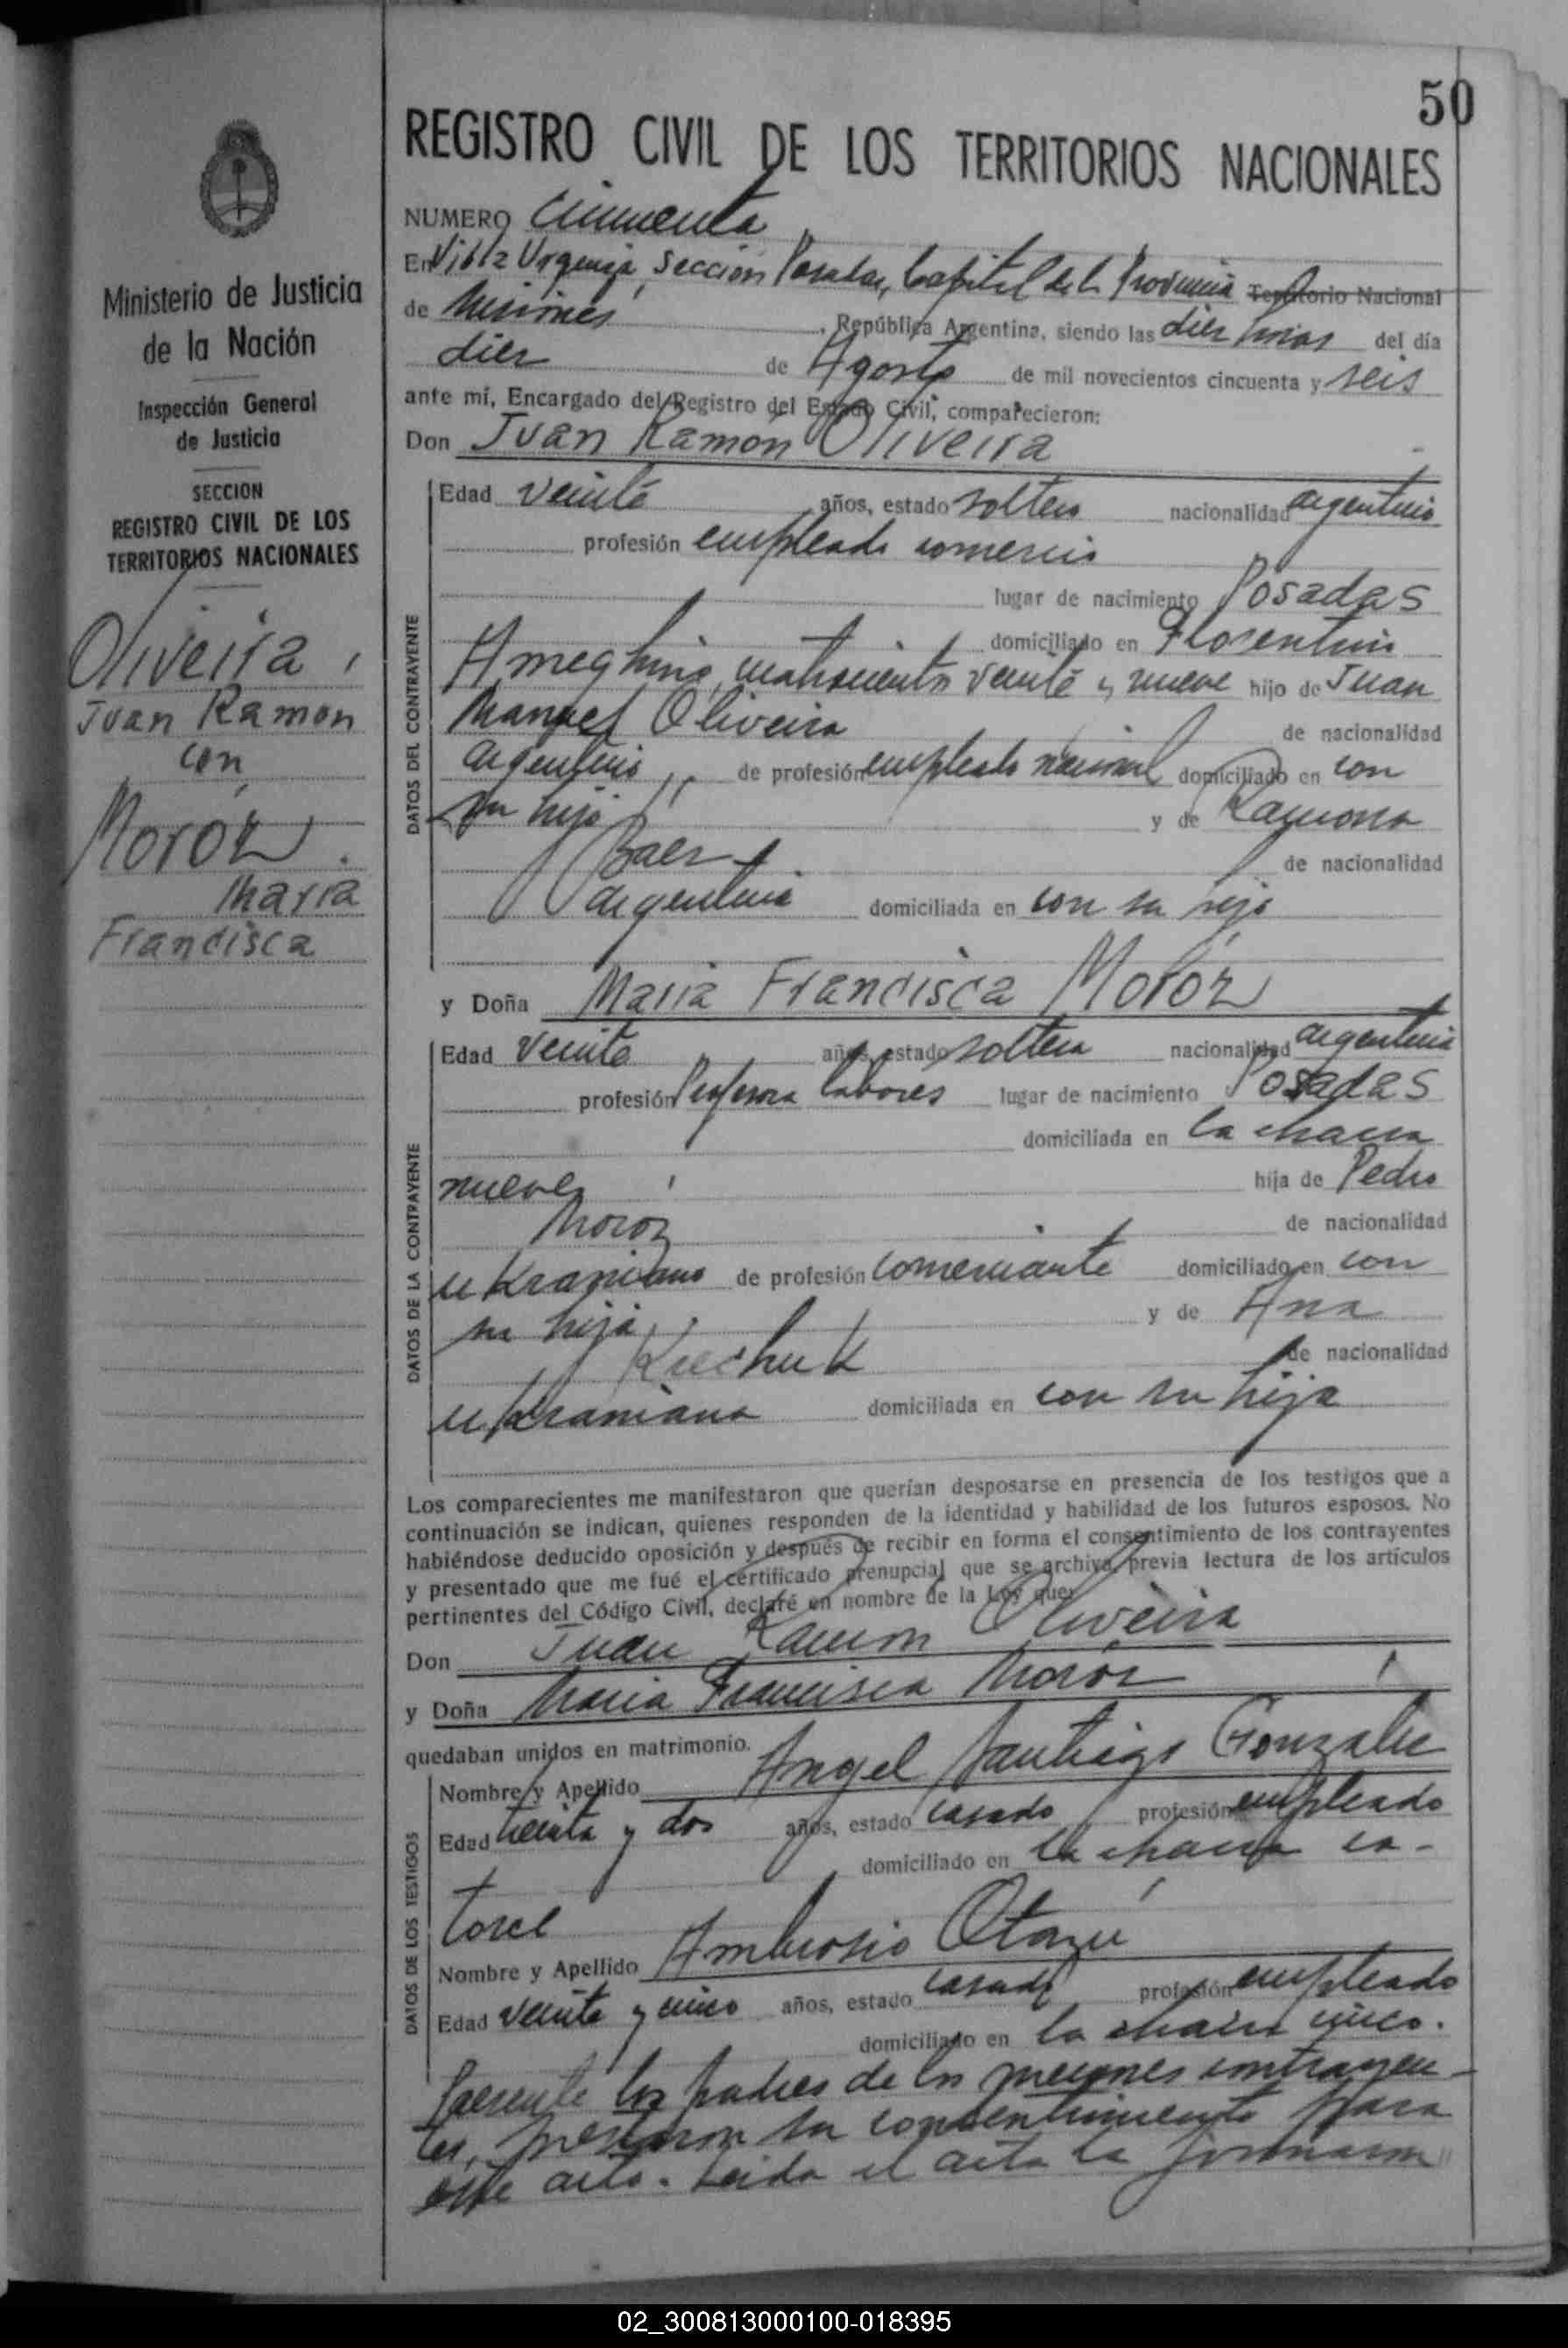 50
REGISTRO CIVIL DE LOS TERRITORIOS NACIONALES
NUMERO Cincuenta
En Villa Urquiza, Sección Posadas, Capital de la Provincia Territorio Nacional
de Misiones , República Argentina, siendo las diez horas del día
diez de Agosto de mil novecientos cincuenta y seis
ante mí, Encargado del Registro del Estado Civil, comparecieron:
Don Juan Ramón Oliveira
Edad veinte años, estado soltero nacionalidad argentino
profesión empleado comercio
lugar de nacimiento Posadas
domiciliado en Florentino
Ameghino, cuatrocientos veinte y nueve hijo de Juan
Manuel Oliveira de nacionalidad
argentino, de profesión empleado nacional domiciliado en con
su hijo y de Ramona
Baez de nacionalidad
argentina domiciliada en con su hijo
y Doña Maria Francisca Moróz
Edad veinte años, estado soltera nacionalidad argentina
profesión Profesora labores lugar de nacimiento Posadas
domiciliada en la chacra
nueve, hija de Pedro
Moroz de nacionalidad
ukraniano de profesión comerciante domiciliado en con
su hija, y de Ana
de nacionalidad
ukraniana domiciliada en con su hija
Los comparecientes me manifestaron que querían desposarse en presencia de los testigos que a
continuación se indican, quienes responden de la identidad y habilidad de los futuros esposos. No
habiéndose deducido oposición y después de recibir en forma el consentimiento de los contrayentes
y presentado que me fué el certificado prenupcial que se archiva, previa lectura de los artículos
pertinentes del Código Civil, declaré en nombre de la Ley que:
Don Juan Ramón Oliveira
y Doña Maria Francisca Moróz
quedaban unidos en matrimonio.
Nombre y Apellido Angel Santiago Gonzalez
Edad treinta y dos años, estado casado profesión empleado
domiciliado en la chacra ca-
torce
Nombre y Apellido Ambrosio Otazú
Edad veinte y cinco años, estado casado profesión empleado
domiciliado en la chacra cinco.
Presente los padres de los menores contrayen-
tes, prestaron su consentimiento para
este acto. Leida el acta la firmaron
DATOS DEL CONTRAYENTE
DATOS DE LA CONTRAYENTE
DATOS DE LOS TESTIGOS
Ministerio de Justicia
de la Nación
Inspección General
de Justicia
SECCION
REGISTRO CIVIL DE LOS
TERRITORIOS NACIONALES
Oliveira,
Juan Ramon
con
Moróz
Maria
Francisca
02_300813000100-018395